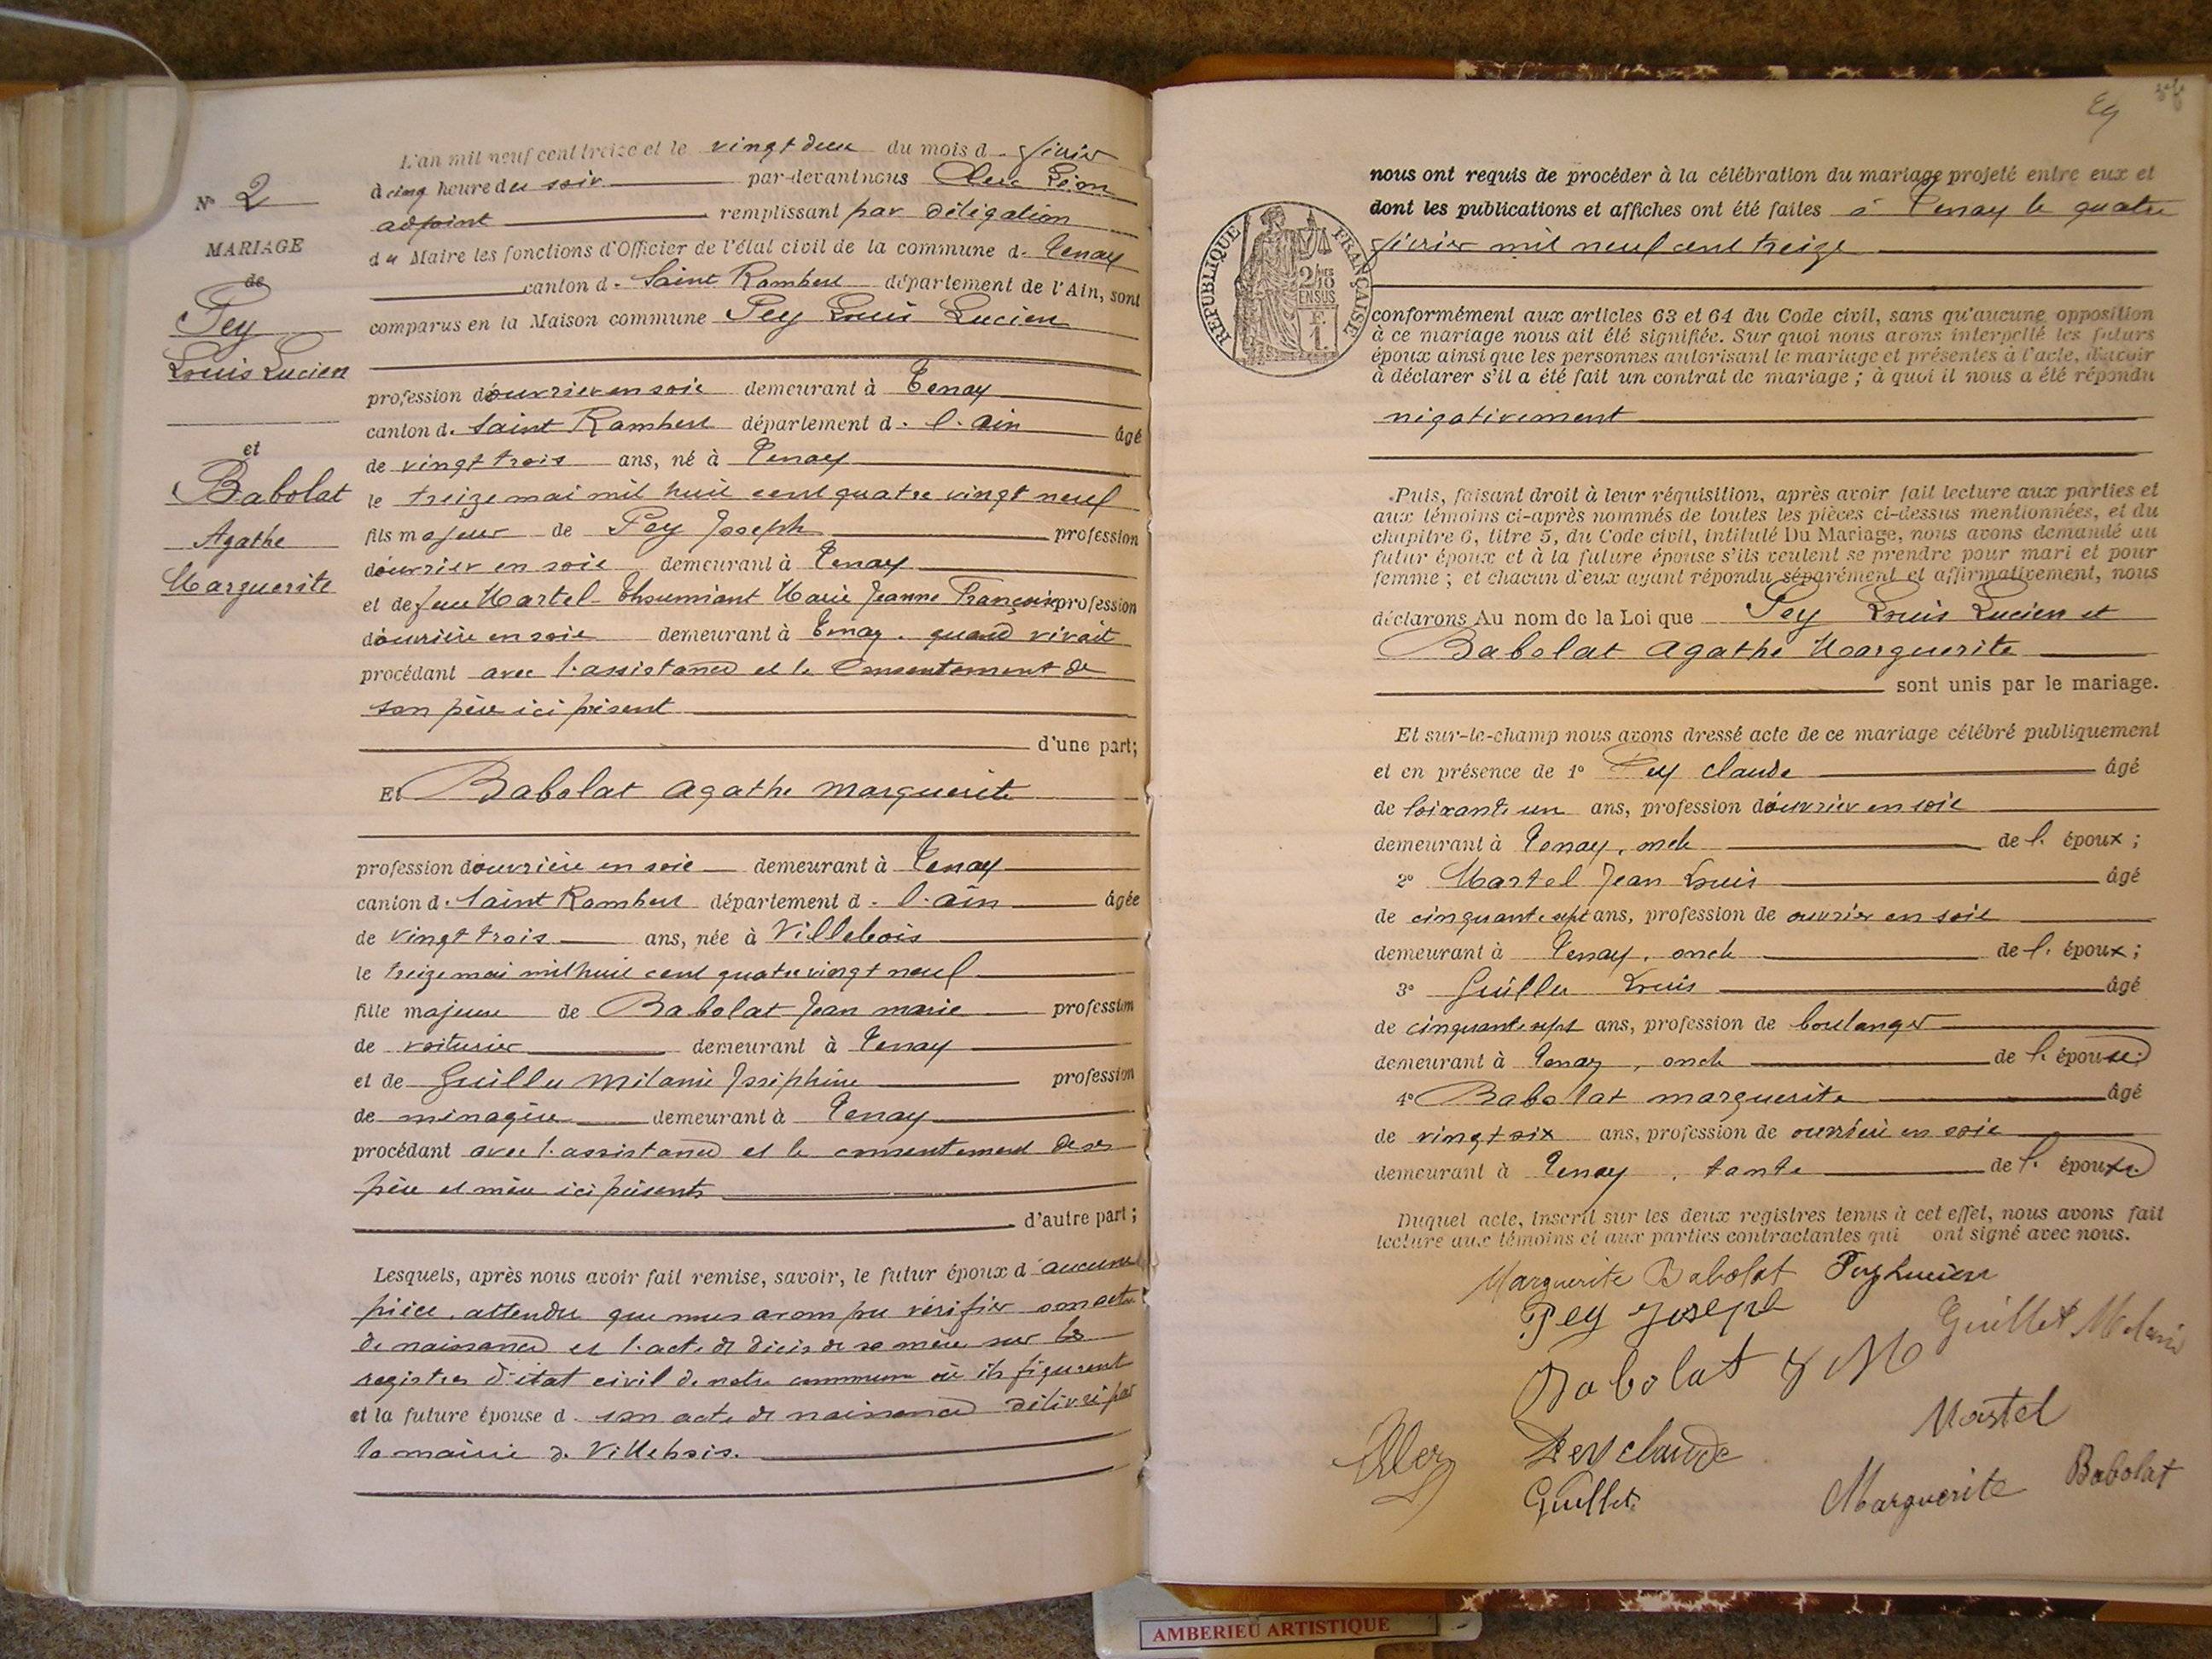 L'an mil neuf cent treize et le vingt deux du mois d. février
à cinq heure du soir par-devant nous Léon
adjoint remplissant par délégation
du Maire les fonctions d'Officier de l'état civil de la commune d. Tenay
canton d. Saint Rambert département de l'Ain, sont
comparus en la Maison commune Pey Louis Lucien
N° 2
MARIAGE
de
Pey
Louis Lucien
et
Babolat
Agathe
Marguerite
profession d'ouvrier en soie demeurant à Tenay
canton d. Saint Rambert département d. l'ain âgé
de vingt trois ans, né à Tenay
le treize mai mil huit cent quatre vingt neuf
fils majeur de Pey Joseph profession
d'ouvrier en soie demeurant à Tenay
et de feue Martel-Thoumiant Marie Jeanne Françoise profession
d'ouvrière en soie demeurant à Tenay. quand vivait
procédant avec l'assistance et le consentement de
son père ici présent
d'une part;
Et Babolat Agathe Marguerite
profession d'ouvrière en soie demeurant à Tenay
canton d. Saint Rambert département d. l'ain âgée
de vingt trois ans, née à Villebois
le treize mai mil huit cent quatre vingt neuf
fille majeure de Babolat Jean marie profession
de voiturier demeurant à Tenay
et de Guillet Mélanie Joséphine profession
de ménagère demeurant à Tenay
procédant avec l'assistance et le consentement de ses
père et mère ici présents
d'autre part;
Lesquels, après nous avoir fait remise, savoir, le futur époux d'aucune
pièce, attendu que nous avons pu vérifier son acte
de naissance et l'acte de décès de sa mère sur les
registres d'état civil de notre commune où ils figurent
et la future épouse d. son acte de naissance délivré par
la mairie d. Villebois.
nous ont requis de procéder à la célébration du mariage projeté entre eux et
dont les publications et affiches ont été faites à Tenay le quatre
février mil neuf cent treize
RÉPUBLIQUE FRANÇAISE
2/10
EN SUS
F.
1.
conformément aux articles 63 et 64 du Code civil, sans qu'aucune opposition
à ce mariage nous ait été signifiée. Sur quoi nous avons interpellé les futurs
époux ainsi que les personnes autorisant le mariage et présentes à l'acte, d'avoir
à déclarer s'il a été fait un contrat de mariage ; à quoi il nous a été répondu
négativement
Puis, faisant droit à leur réquisition, après avoir fait lecture aux parties et
aux témoins ci-après nommés de toutes les pièces ci-dessus mentionnées, et du
chapitre 6, titre 5, du Code civil, intitulé Du Mariage, nous avons demandé au
futur époux et à la future épouse s'ils veulent se prendre pour mari et pour
femme ; et chacun d'eux ayant répondu séparément et affirmativement, nous
déclarons Au nom de la Loi que Pey Louis Lucien et
Babolat Agathe Marguerite
sont unis par le mariage.
Et sur-le-champ nous avons dressé acte de ce mariage célébré publiquement
et en présence de 1° Pey claude âgé
de soixante un ans, profession d'ouvrier en soie
demeurant à Tenay, oncle de l. époux ;
2° Martel Jean Louis âgé
de cinquante sept ans, profession de ouvrier en soie
demeurant à Tenay, oncle de l. époux ;
3° Guillet Louis âgé
de cinquante sept ans, profession de boulanger
demeurant à Tenay, oncle de l. épouse
4° Babolat marguerite âgé
de vingt six ans, profession de ouvrière en soie
demeurant à Tenay, tante de l. épouse
Duquel acte, inscrit sur les deux registres tenus à cet effet, nous avons fait
lecture aux témoins et aux parties contractantes qui ont signé avec nous.
Marguerite Babolat Pey Lucien
Pey Joseph
Guillet Melanie
Babolat J M
Martel
Pey claude
Guillet
Marguerite Babolat
AMBERIEU ARTISTIQUE